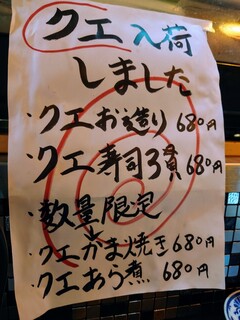 クエ入荷
しました
・クエお造り680円
・クエ寿司3貫680円
・数量限定
・クエかま焼き680円
・クエあら煮 680円